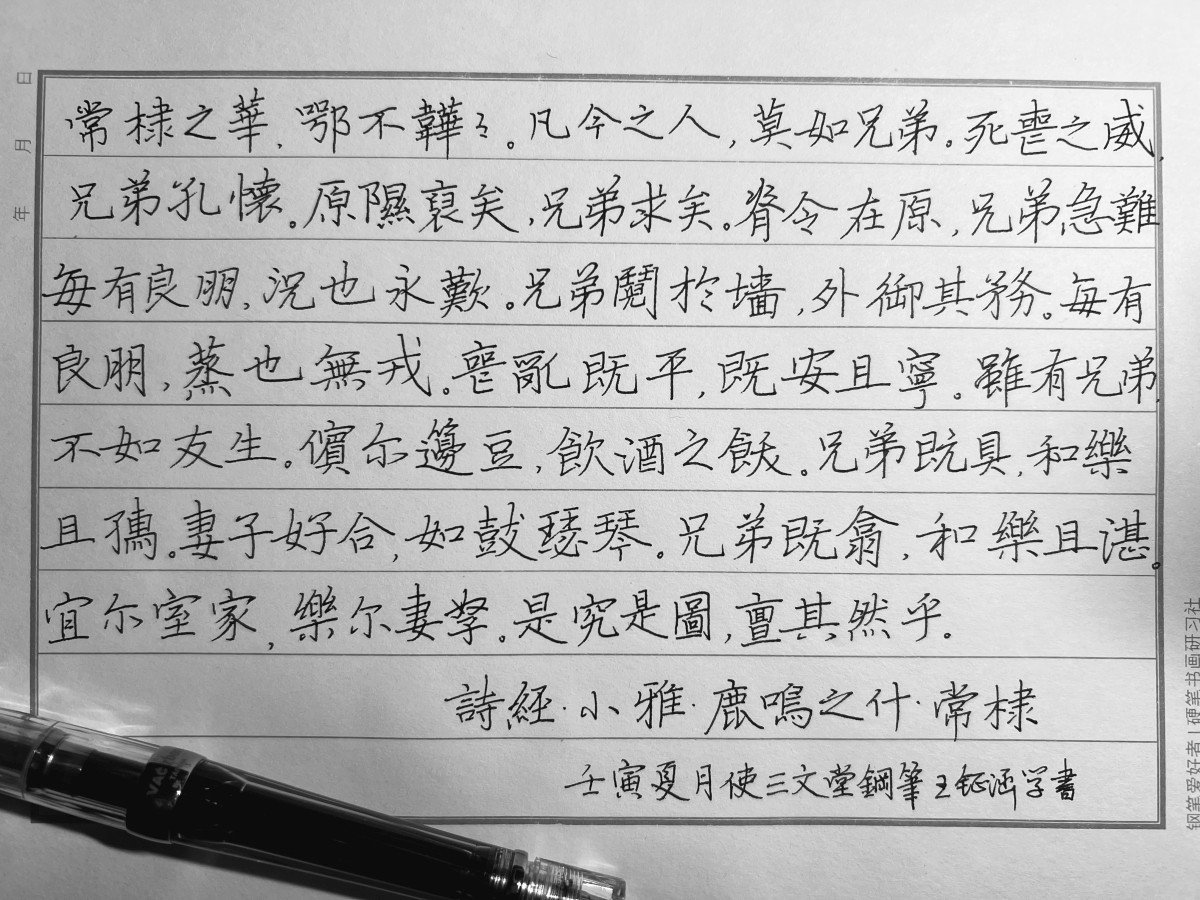 常棣之華，鄂不韡〻。凡今之人，莫如兄弟。死喪之威，
兄弟孔懷。原隰裒矣，兄弟求矣。脊令在原，兄弟急難
每有良朋，況也永歎。兄弟鬩於墻，外御其務。每有
良朋，烝也無戎。喪亂既平，既安且寧。雖有兄弟，
不如友生。儐尔籩豆，飲酒之飫。兄弟既具，和樂
且孺。妻子好合，如鼓瑟琴。兄弟既翕，和樂且湛。
宜尔室家，樂尔妻孥。是究是圖，亶其然乎。
詩經·小雅·鹿鳴之什·常棣
壬寅夏月使三文堂鋼筆王鉦涵学書
年 月 日
钢笔爱好者|硬笔书画研习社
VAC